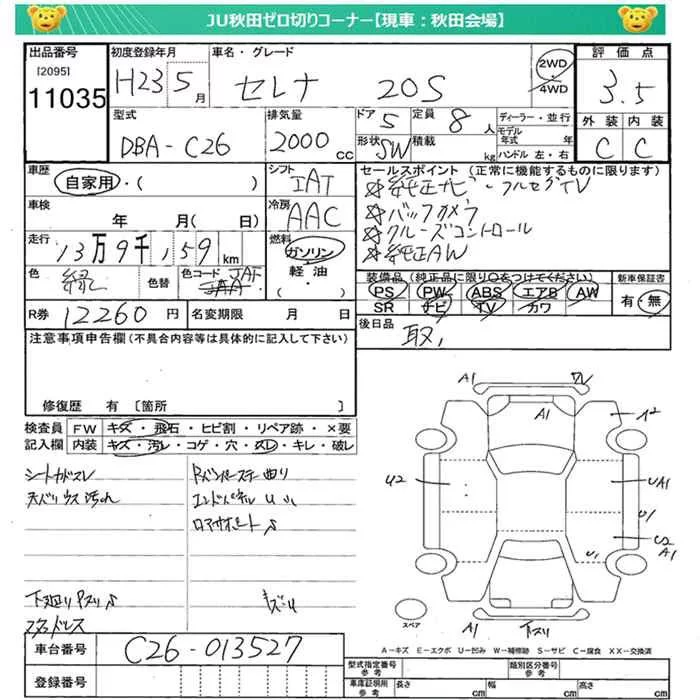 JU秋田ゼロ切りコーナー【現車：秋田会場】
出品番号 初度登録年月 車名・グレード 2WD 4WD 評価点
[2095]
11035 H23 5月 セレナ 20S 3.5
型式 排気量 ドア 定員 ディーラー・並行 外装 内装
DBA-C26 2000cc 5 8人 モデル年式 年 C C
形状 SW 積載 kg ハンドル 左・右
車歴 シフト セールスポイント (正常に機能するものに限ります)
自家用・( ) IAT 純正ナビ・フルセグTV
車検 冷房 バックカメラ
年 月(日) AAC クルーズコントロール
走行 燃料 純正AW
13万9千159km ガソリン・軽油・( )
色 緑 色替 色コード JAT 装備品 (純正品に限り○をつけてください) 新車保証書
PS PW ABS エアB AW 有・無
SR ナビ TV カワ
R券 12260円 名変期限 月 日 後日品
取,
注意事項申告欄(不具合内容等は具体的に記入して下さい)
修復歴 有 [箇所 ]
検査員 FW キズ・飛石・ヒビ割・リペア跡・×要
記入欄 内装 キズ・汚レ・コゲ・穴・スレ・キレ・破レ
シートカドスレ
エンドパネル
下廻り
キズU
A1 W
A1 A2
U2 UA1
U1
U2
A1
U1
スペア A1 下スリ
A-キズ E-エクボ U-凹み W-補修跡 S-サビ C-腐食 XX-交換済
車台番号 C26-013527
登録番号
型式指定番号 参考 類別区分番号 参考
車庫証明用 参考 長さ cm 幅 cm 高さ cm